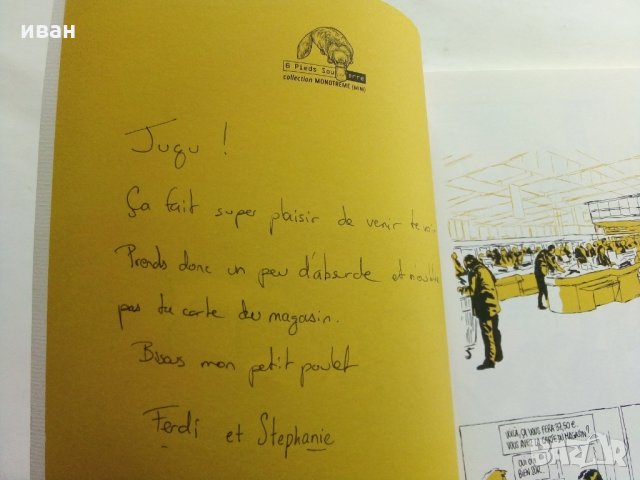 иван
6 Pieds Sou erre
collection MONOTREME (MINI)
Jugu !
Ça fait super plaisir de venir te voir
Prends donc un peu d'absurde et n'oublie
pas ta carte du magasin.
Bisous mon petit poulet
Ferdi et Stephanie
VOILÀ, ÇA VOUS FERA 37,50 €.
VOUS AVEZ LA CARTE DU MAGASIN ?
OUI OUI
BIEN SÛR.
BAZAR